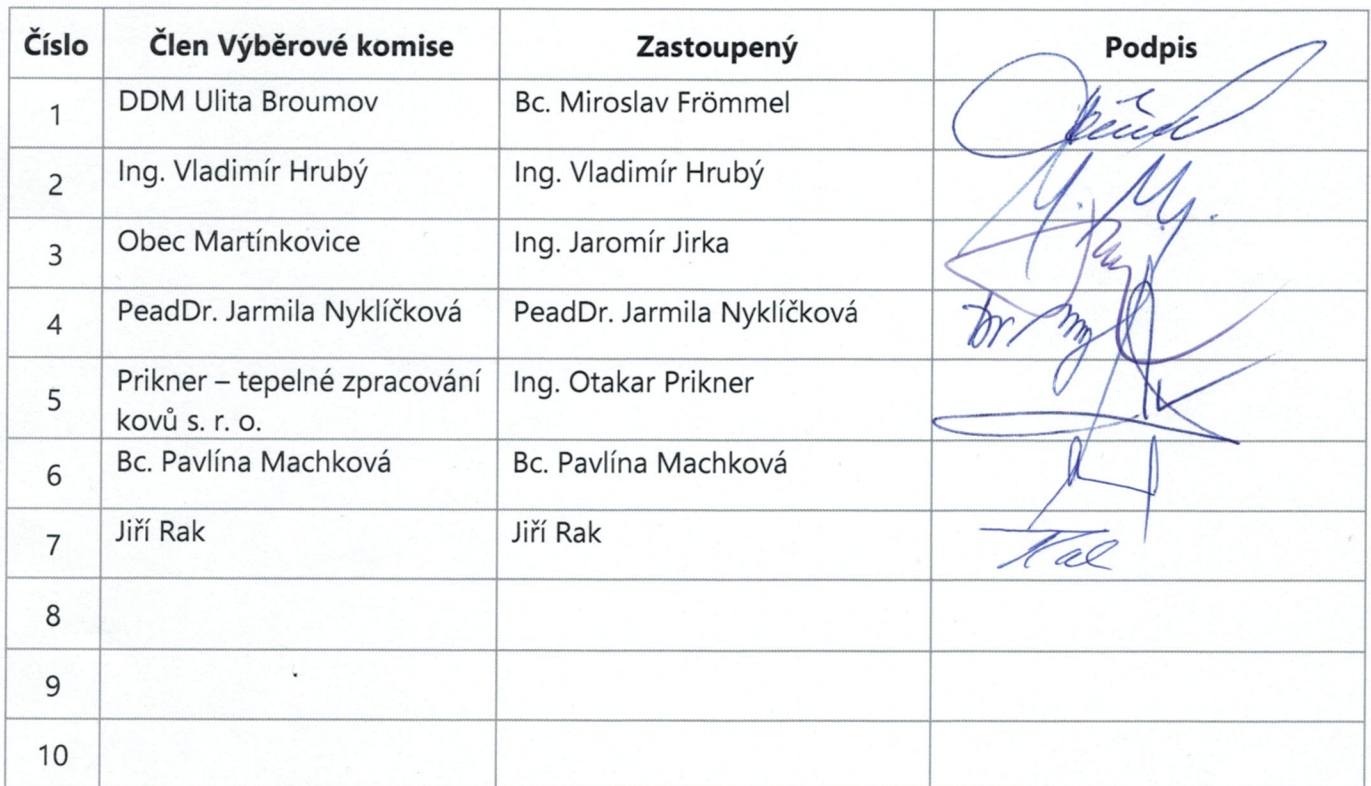 Číslo Člen Výběrové komise Zastoupený Podpis
1 DDM Ulita Broumov Bc. Miroslav Frömmel
2 Ing. Vladimír Hrubý Ing. Vladimír Hrubý
3 Obec Martínkovice Ing. Jaromír Jirka
4 PeadDr. Jarmila Nyklíčková PeadDr. Jarmila Nyklíčková
5 Prikner – tepelné zpracování Ing. Otakar Prikner
kovů s. r. o.
6 Bc. Pavlína Machková Bc. Pavlína Machková
7 Jiří Rak Jiří Rak
8
9
10